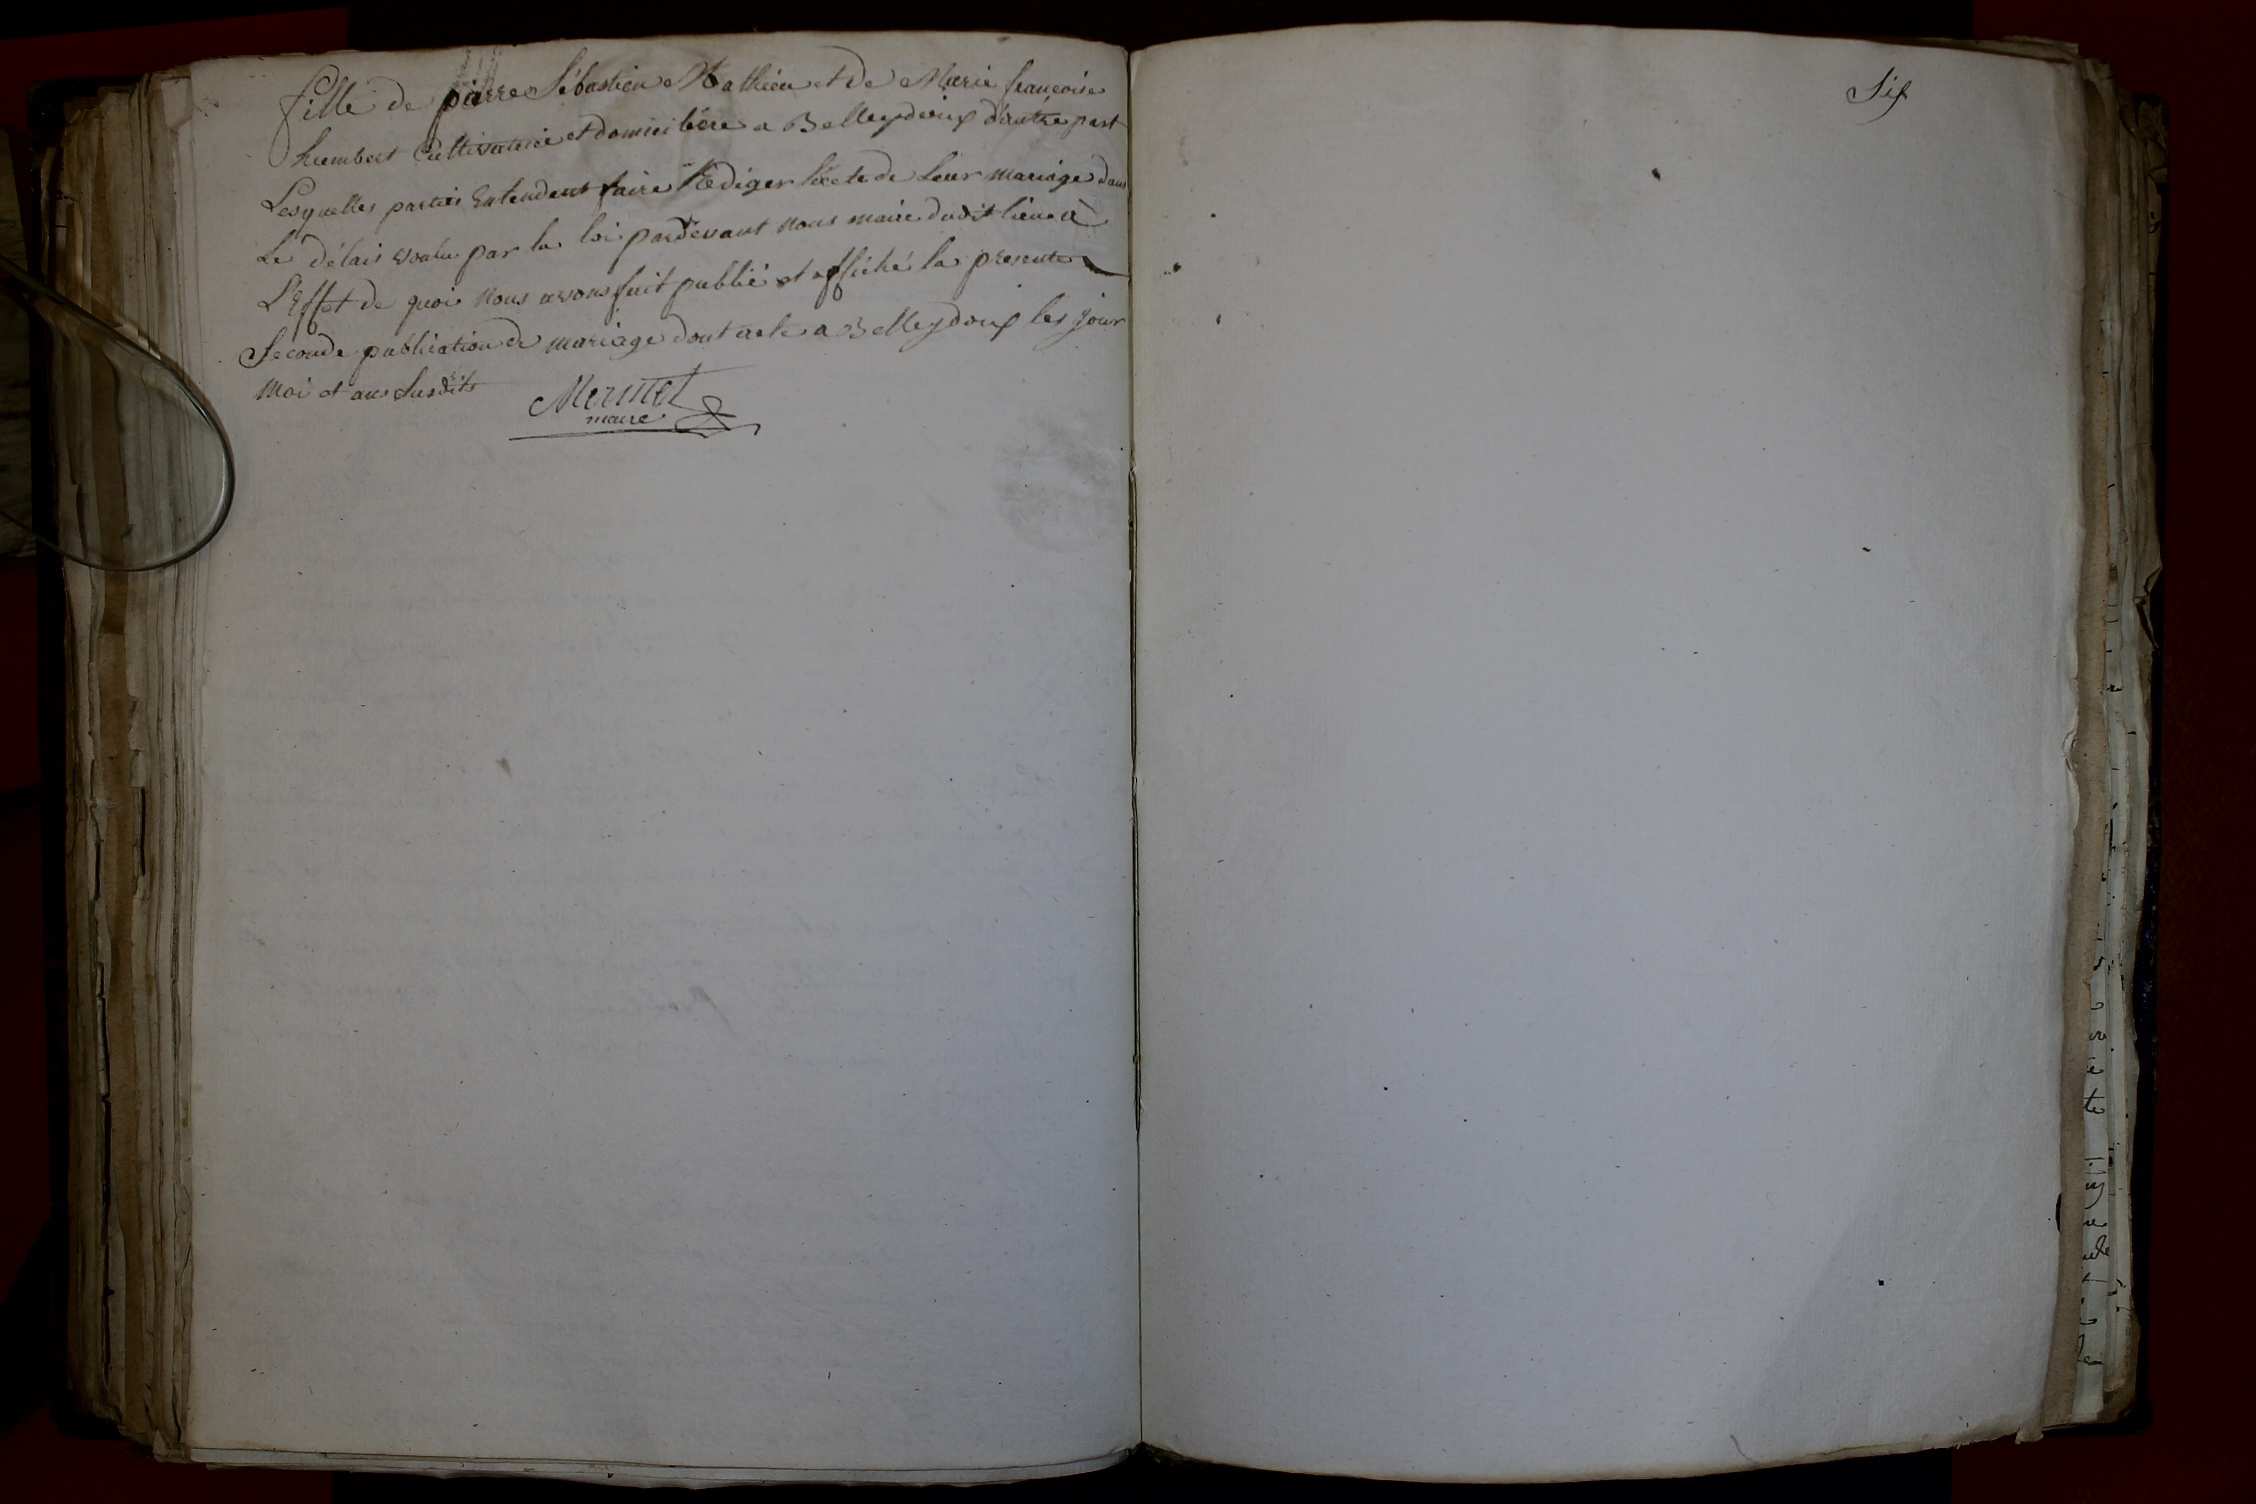 fille de pierre Sébastien Mathieu et de Marie françoise
humbert Cultivatrice et domiciliére a Belleydoux d'autre part
Lesquelles parties Entendent faire Rediger l'acte de Leur mariage dans
Le délais voulu par la loi pardevant nous maire dudit lieu a
L'Effet de quoi nous avons fait publié et affiché la presente
Seconde publication de mariage dont acte a Belleydoux les jour
moi et ans susdits
Mermet
maire
Six